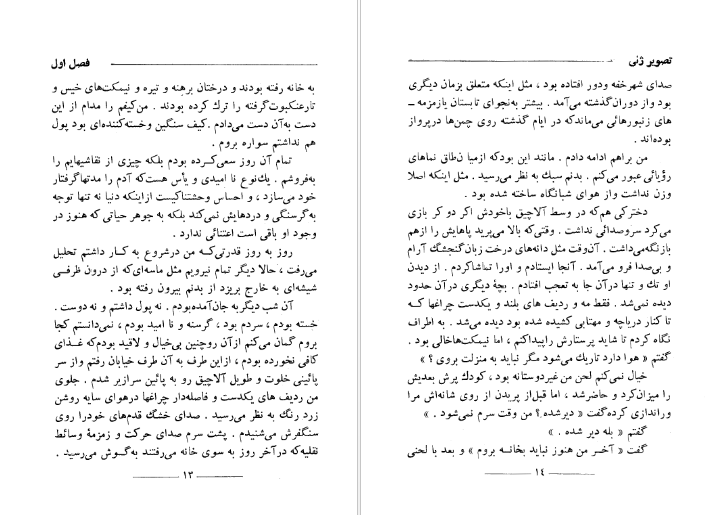 تصویر ژنی
صدای شهرخفه ودور افتاده بود ، مثل اینکه متعلق بزمان دیگری
بود واز دوران‌گذشته می‌آمد . بیشتر به‌نجوای تابستان یازمزمه ـ
های زنبورهائی می‌ماندکه در ایام گذشته روی چمن‌ها درپرواز
بوده‌اند .
من براهم ادامه دادم . مانند این بودکه ازمیا ن‌طاق نماهای
رؤیائی عبور می‌کنم . بدنم سبک به نظر می‌رسید . مثل اینکه اصلا
وزن نداشت واز هوای شبانگاه ساخته شده بود .
دخترکی هم‌که در وسط آلاچیق باخودش اکر دو کر بازی
می‌کرد سروصدائی نداشت . وقتی‌که بالا می‌پرید پاهایش را ازهم
بازنگه‌می‌داشت . آن‌وقت مثل دانه‌های درخت زبان‌گنجشک آرام
و بی‌صدا فرو می‌آمد . آنجا ایستادم و اورا تماشاکردم . از دیدن
او تك و تنها درآن جا به تعجب افتادم . بچهٔ دیگری درآن حدود
دیده نمی‌شد . فقط مه و ردیف های بلند و یکدست چراغها کـه
تا کنار دریاچه و مهتابی کشیده شده بود دیده می‌شد . به اطراف
نگاه کردم تا شاید پرستارش راپیداکنم ، اما نیمکت‌هاخالی بود .
گفتم « هوا دارد تاریك می‌شود مگر نباید به منزلت بروی ؟ »
خیال نمی‌کنم لحن من غیردوستانه بود ، کودك پرش بعدیش
را میزان‌کرد و حاضرشد ، اما قبل‌از پریدن از روی شانه‌اش مرا
وراندازی کرده‌گفت « دیرشده ؟ من وقت سرم نمی‌شود . »
گفتم « بله دیر شده . »
گفت « آخـر من هنوز نباید بخانـه بروم » و بعد با لحنی
۱٤
فصل اول
به خانه رفته بودند و درختان برهنه و تیره و نیمکت‌های خیس و
تارعنکبوت‌گرفته را ترك کرده بودند . من‌کیفم را مدام از این
دست به‌آن دست می‌دادم .کیف سنگین وخسته‌کننده‌ای بود پول
هم نداشتم سواره بروم .
تمام آن روز سعی‌کـرده بودم بلکه چیزی از نقاشیهایم را
به‌فروشم . یك‌نوع نا امیدی و یأس هست‌که آدم را مدتهاگرفتار
خود می‌سازد ، و احساس وحشتناکیست ازاینکه دنیا نه تنها توجه
به‌گرسنگی و دردهایش نمی‌کند بلکه به جوهر حیاتی که هنوز در
وجود او باقی است اعتنائی ندارد .
روز به روز قدرتی‌کـه من درشروع به کـار داشتم تحلیل
می‌رفت ، حالا دیگر تمام نیرویم مثل ماسه‌ای‌که از درون ظرفـی
شیشه‌ای به خارج بریزد از بدنم بیرون رفته بود .
آن شب دیگر به‌جان آمده‌بودم . نه پول داشتم و نه دوست .
خسته بودم ، سردم بود ، گرسنه و نا امید بودم ، نمی‌دانستم کجا
بروم گمان می‌کنم ازآن روچنین بی‌خیال و لاقید بودم‌که غـذای
کافی نخورده بودم ، ازاین طرف به آن طرف خیابان رفتم واز سر
پائینی خلوت و طویل آلاچیق رو به پائین سرازیر شدم . جلوی
من ردیف های یکدست و فاصله‌دار چراغها درهوای سایه روشن
زرد رنگ به نظر می‌رسید . صدای خشك قدم‌های خودرا روی
سنگفرش می‌شنیدم . پشت سرم صدای حرکت و زمزمهٔ وسائط
نقلیه‌که درآخر روز به سوی خانه می‌رفتند به‌گـوش می‌رسید .
۱۳